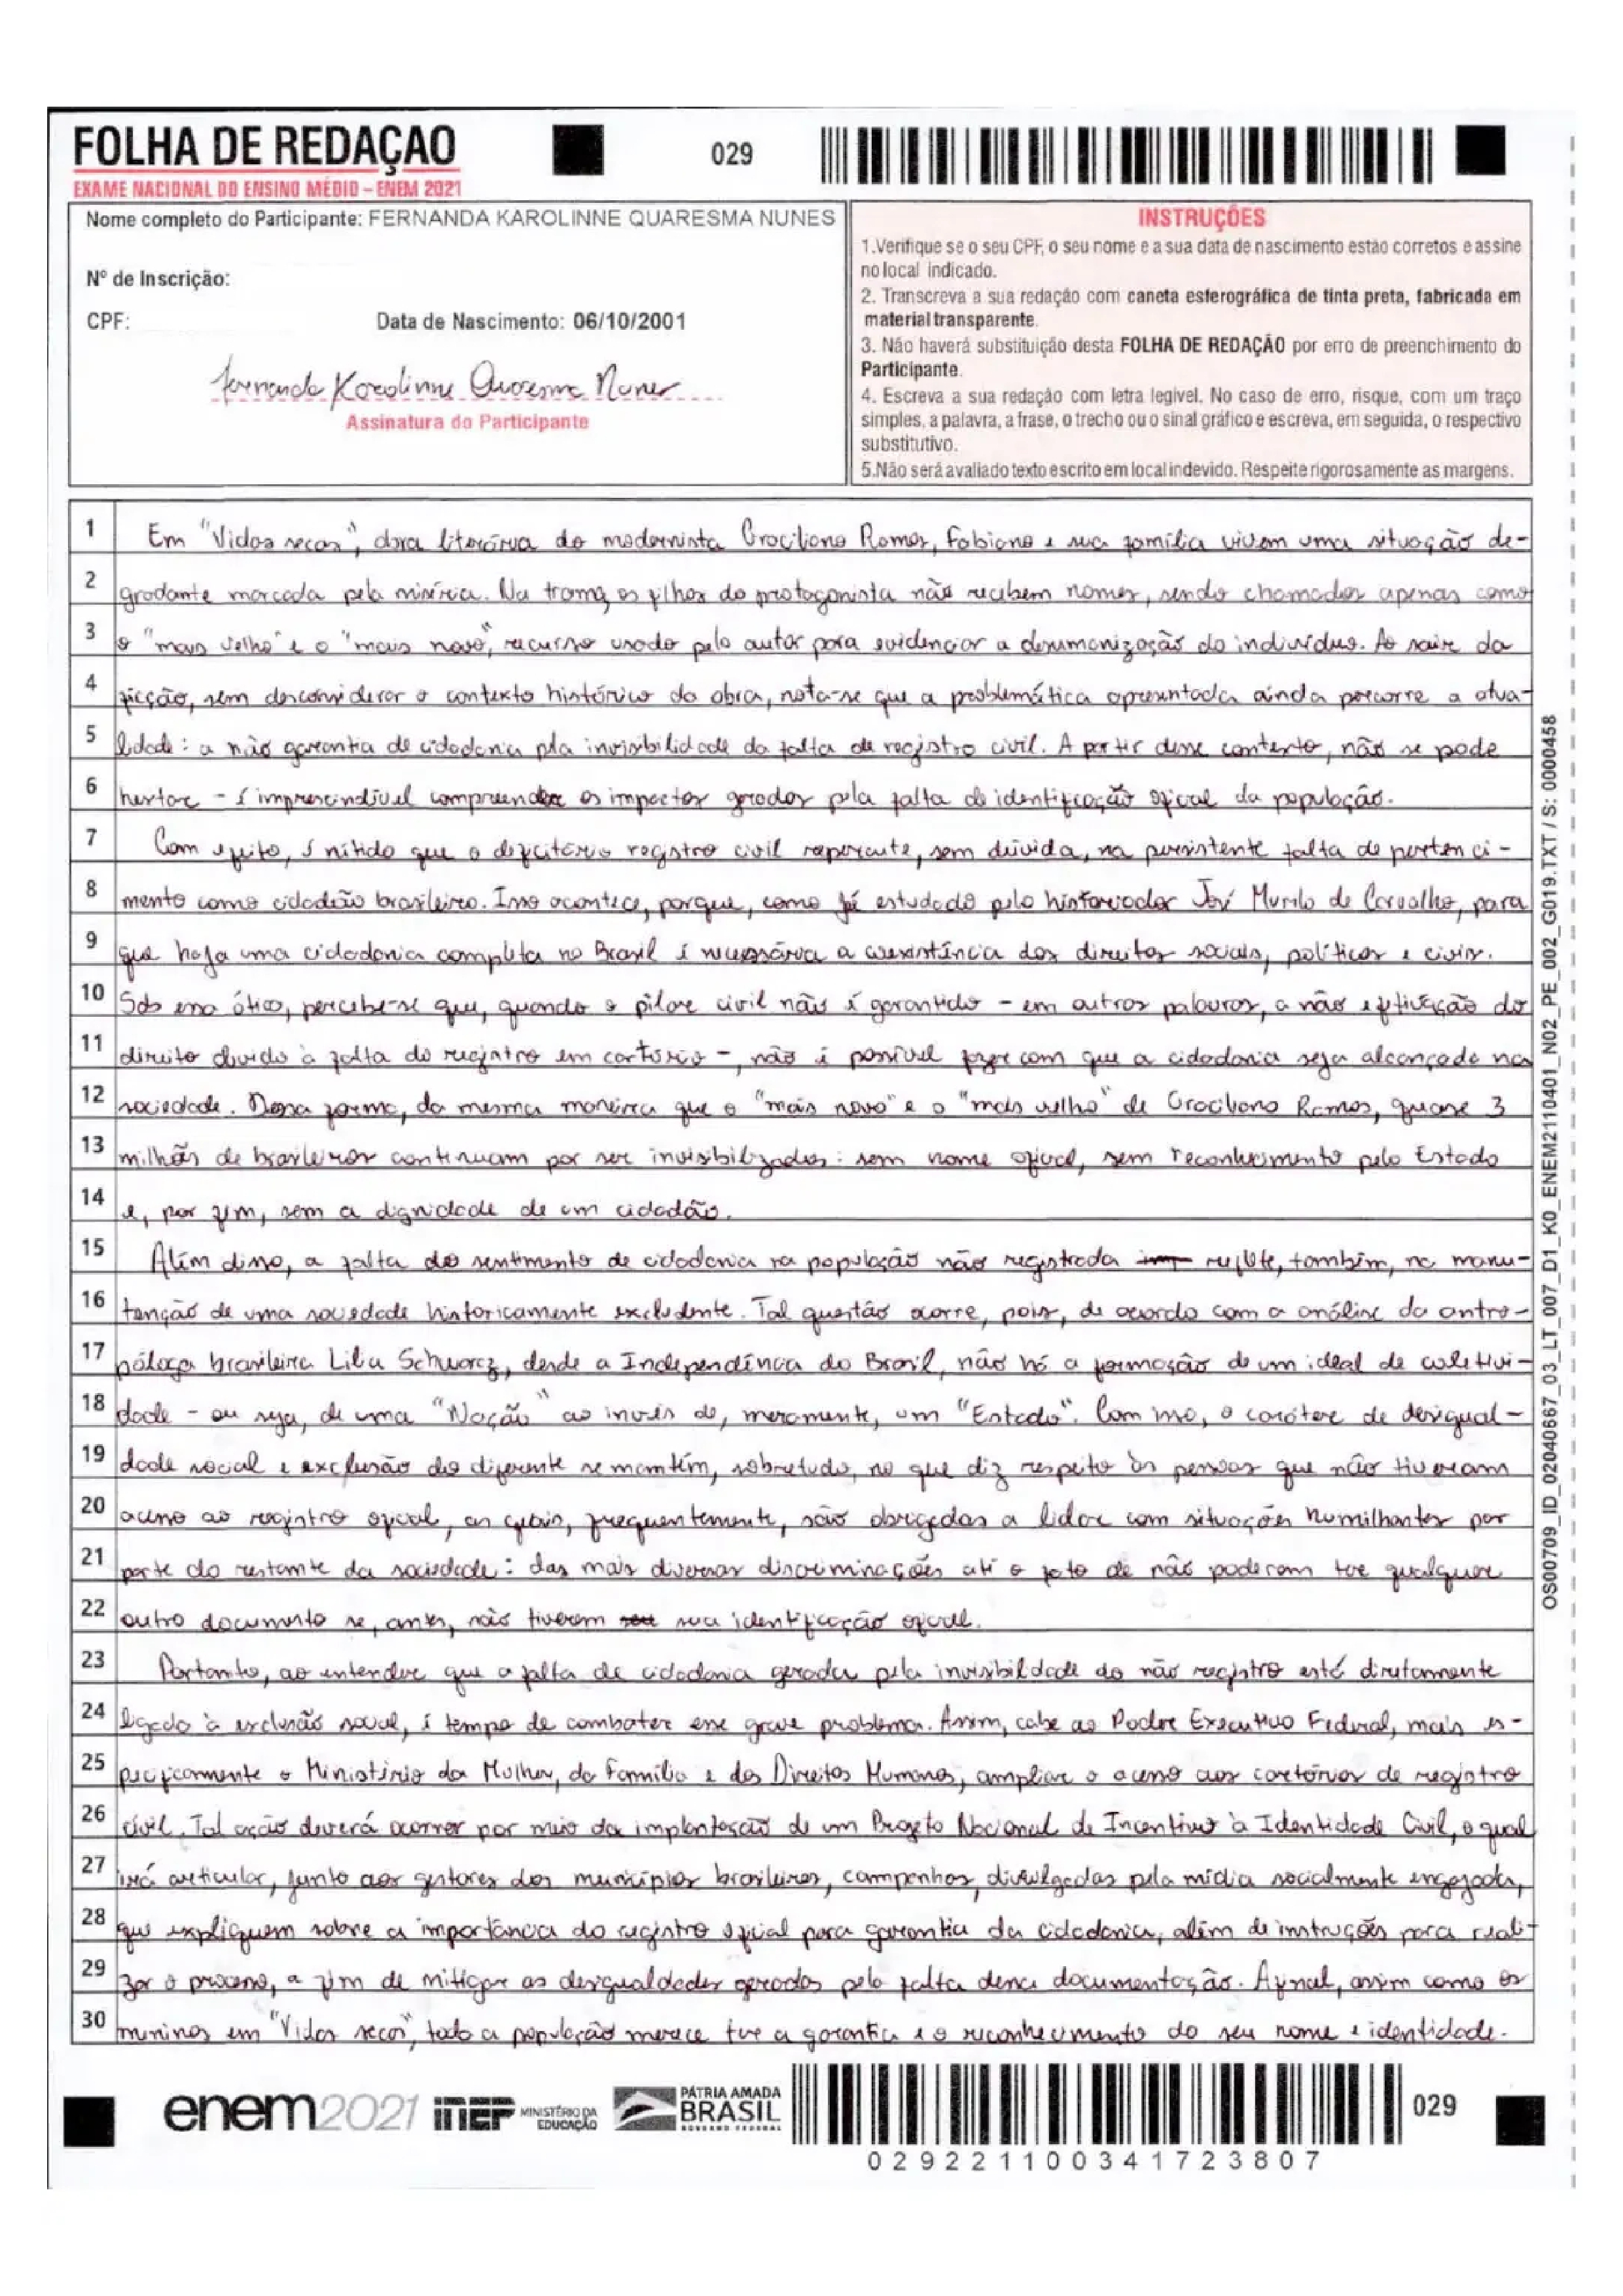 FOLHA DE REDAÇAO
029
EXAME NACIONAL DO ENSINO MÉDIO – ENEM 2021
Nome completo do Participante: FERNANDA KAROLINNE QUARESMA NUNES
Nº de Inscrição:
CPF:
Data de Nascimento: 06/10/2001
Fernanda Karolinne Quaresma Nunes
Assinatura do Participante
INSTRUÇÕES
1.Verifique se o seu CPF, o seu nome e a sua data de nascimento estão corretos e assine
no local indicado.
2. Transcreva a sua redação com caneta esferográfica de tinta preta, fabricada em
material transparente.
3. Não haverá substituição desta FOLHA DE REDAÇÃO por erro de preenchimento do
Participante.
4. Escreva a sua redação com letra legível. No caso de erro, risque, com um traço
simples, a palavra, a frase, o trecho ou o sinal gráfico e escreva, em seguida, o respectivo
substitutivo.
5.Não será avaliado texto escrito em local indevido. Respeite rigorosamente as margens.
1 Em "Vidas secas", obra literária do modernista Graciliano Ramos, Fabiano e sua família vivem uma situação de-
2 gradante marcada pela miséria. Na trama, os filhos do protagonista não recebem nomes, sendo chamados apenas como
3 o "mais velho" e o "mais novo", recurso usado pelo autor para evidenciar a desumanização do indivíduo. Ao sair da
4 ficção, sem desconsiderar o contexto histórico da obra, nota-se que a problemática apresentada ainda percorre a atua-
5 lidade: a não garantia de cidadania pela invisibilidade da falta de registro civil. A partir desse contexto, não se pode
6 hesitar – é imprescindível compreender os impactos gerados pela falta de identificação oficial da população.
7 Com efeito, é nítido que o deficitário registro civil repercute, sem dúvida, na persistente falta de pertenci-
8 mento como cidadão brasileiro. Isso acontece, porque, como já estudado pelo historiador José Murilo de Carvalho, para
9 que haja uma cidadania completa no Brasil é necessária a coexistência dos direitos sociais, políticos e civis.
10 Sob essa ótica, percebe-se que, quando o pilar civil não é garantido – em outras palavras, a não efetivação do
11 direito devido à falta do registro em cartório –, não é possível fazer com que a cidadania seja alcançada na
12 sociedade. Dessa forma, da mesma maneira que o "mais novo" e o "mais velho" de Graciliano Ramos, quase 3
13 milhões de brasileiros continuam por ser invisibilizados: sem nome oficial, sem reconhecimento pelo Estado
14 e, por fim, sem a dignidade de um cidadão.
15 Além disso, a falta do sentimento de cidadania na população não registrada reflete, também, na manu-
16 tenção de uma sociedade historicamente excludente. Tal questão ocorre, pois, de acordo com a análise da antro-
17 póloga brasileira Lilia Schwarcz, desde a Independência do Brasil, não há a formação de um ideal de coletivi-
18 dade – ou seja, de uma "Nação" ao invés de, meramente, um "Estado". Com isso, o caráter de desigual-
19 dade social e exclusão do diferente se mantém, sobretudo, no que diz respeito às pessoas que não tiveram
20 acesso ao registro oficial, as quais, frequentemente, são obrigadas a lidar com situações humilhantes por
21 parte do restante da sociedade: das mais diversas discriminações até o fato de não poderem ter qualquer
22 outro documento se, antes, não tiverem sua identificação oficial.
23 Portanto, ao entender que a falta de cidadania gerada pela invisibildade do não registro está diretamente
24 ligada à exclusão social, é tempo de combater esse grave problema. Assim, cabe ao Poder Executivo Federal, mais es-
25 pecificamente o Ministério da Mulher, da Família e dos Direitos Humanos, ampliar o acesso aos cartórios de registro
26 civil. Tal ação deverá ocorrer por meio da implantação de um Projeto Nacional de Incentivo à Identidade Civil, o qual
27 irá articular, junto aos gestores dos municípios brasileiros, campanhas, divulgadas pela mídia socialmente engajada,
28 que expliquem sobre a importância do registro oficial para garantia da cidadania, além de instruções para reali-
29 zar o processo, a fim de mitigar as desigualdades geradas pela falta dessa documentação. Afinal, assim como os
30 meninos em "Vidas secas", toda a população merece ter a garantia e o reconhecimento do seu nome e identidade.
OS00709_ID_02040667_03_LT_007_D1_K0_ENEM2110401_N02_PE_002_G019.TXT / S: 0000458
enem2021 inep MINISTÉRIO DA EDUCAÇÃO
PÁTRIA AMADA
BRASIL
GOVERNO FEDERAL
029
0292211003417238​07